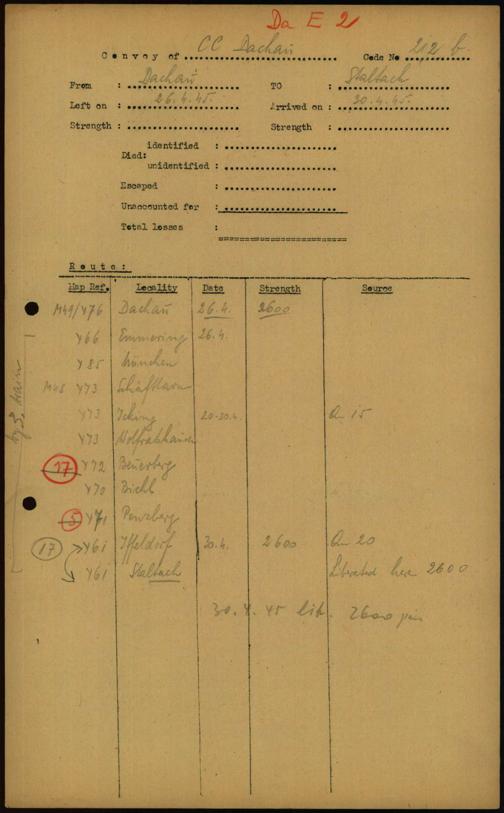 Da E 2
Convoy of CC Dachau Code No 212 b.
From : Dachau TO : Staltach
Left on : 26.4.45. Arrived on : 30.4.45.
Strength : Strength :
identified :
Died:
unidentified :
Escaped :
Unaccounted for :
Total losses :
Route:
Map Ref. Locality Date Strength Source
M49/Y76 Dachau 26.4. 2600
Y66 Emmering 26.4.
Y85 München
M48 Y73 Schäftlarn
Y73 Icking 20-30.4. 15
Y73 Wolfratshausen
17 Y72 Beuerberg
Y70 Bichl
5 Y71 Penzberg
17 Y61 Iffeldorf 30.4. 2600 20
Y61 Staltach Liberated here 2600
30.4.45 lib. 2600
by train